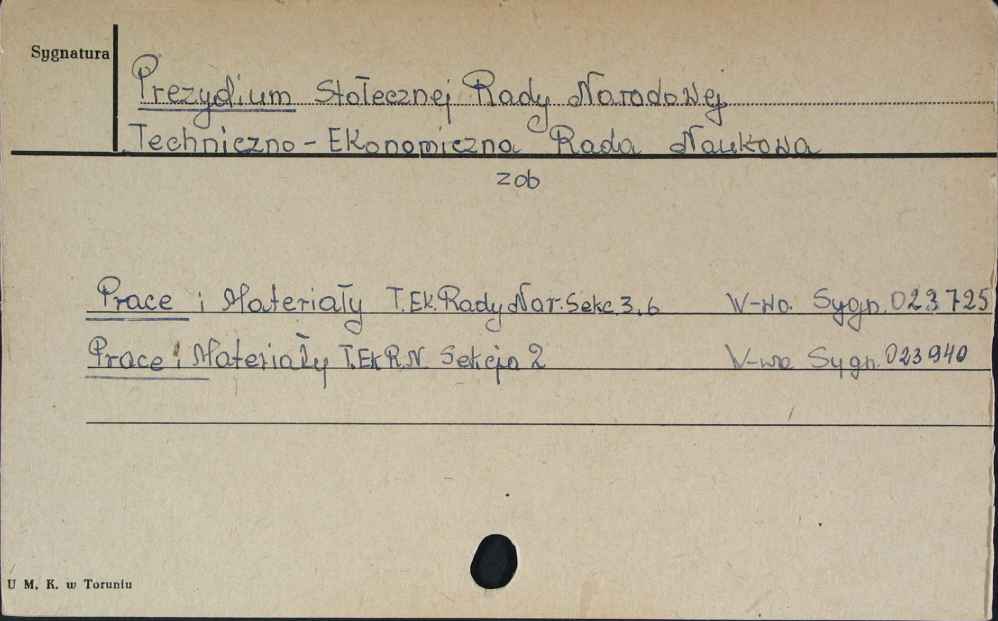 Sygnatura
Prezydium Stołecznej Rady Narodowej
Techniczno-Ekonomiczna Rada Naukowa
zob
Prace i Materiały T.Ek.Rady Nar.Sekc.3.6 W-wa. Sygn. 023725
Prace i Materiały T.Ek R.N. Sekcja 2 W-wa Sygn. 023940
U M. K. w Toruniu